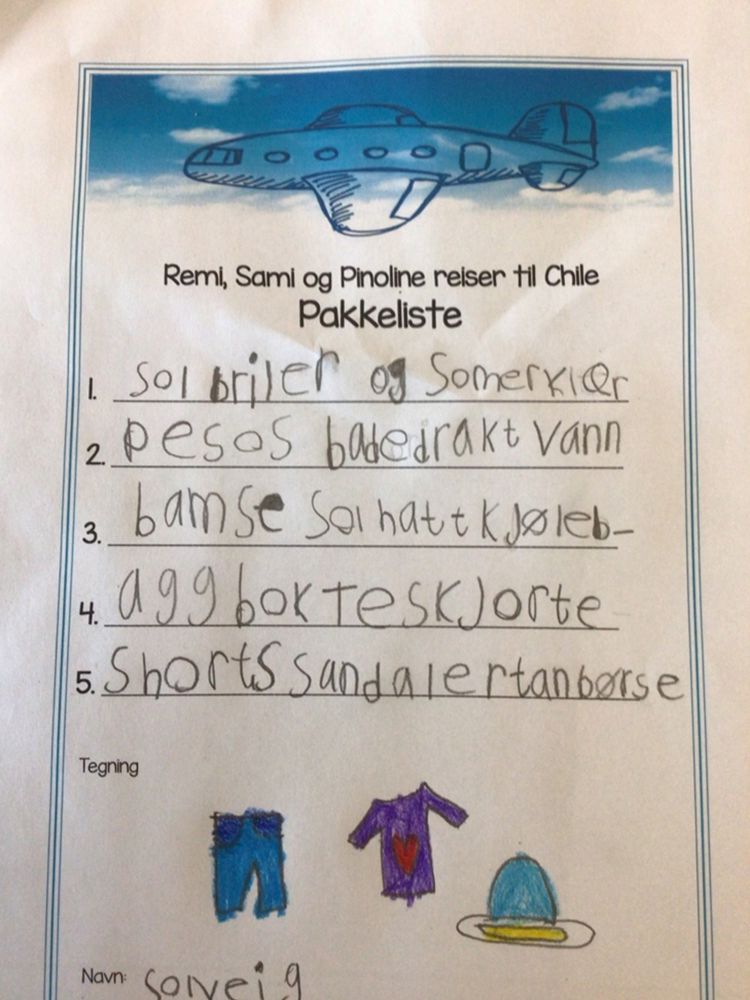 Remi, Sami og Pinoline reiser til Chile
Pakkeliste
1. sol briler og Somerklær
2. pesos badedrakt vann
3. bamse Sol hatt kjøleb-
4. agg bok Teskjorte
5. Shorts sandaler tanbørse
Tegning
Navn: Solveig